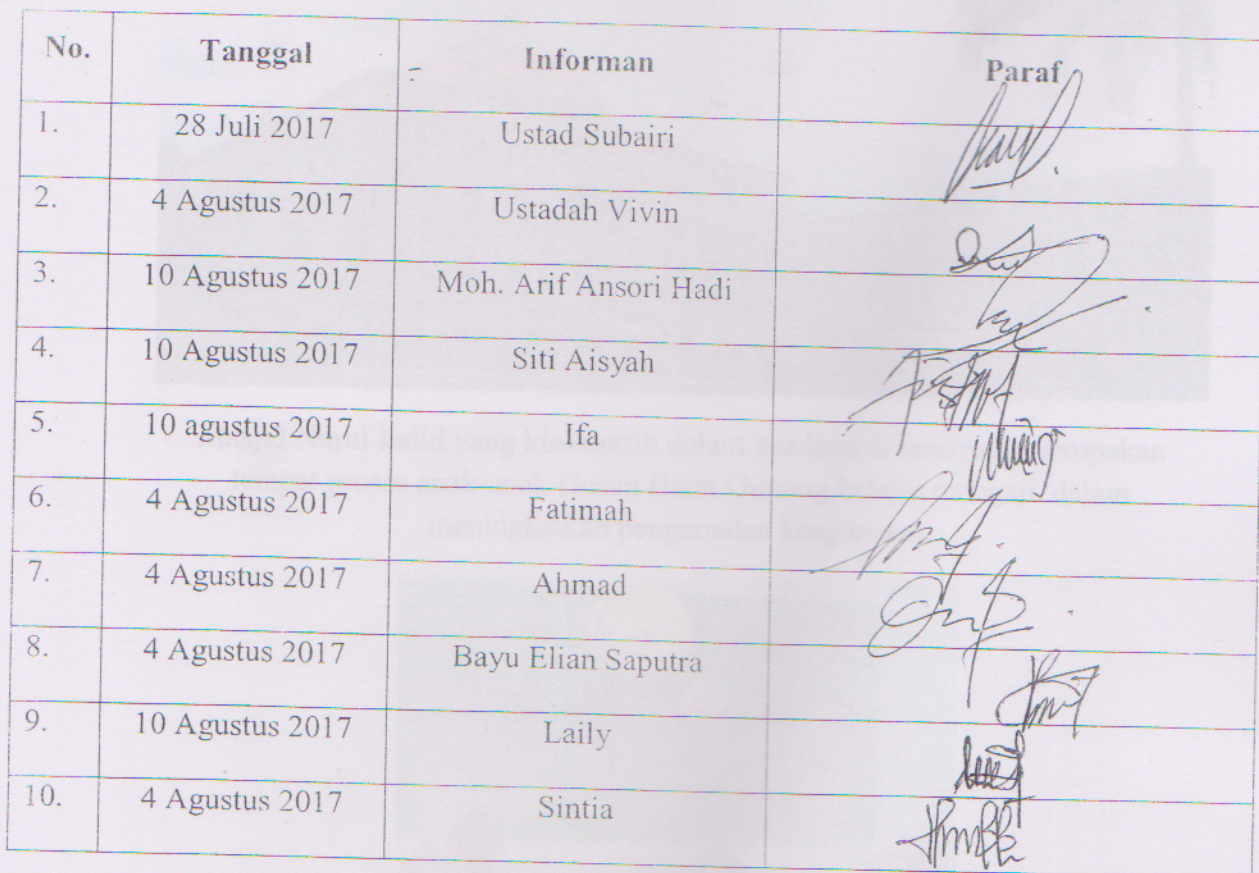 No. Tanggal Informan Paraf
1. 28 Juli 2017 Ustad Subairi
2. 4 Agustus 2017 Ustadah Vivin
3. 10 Agustus 2017 Moh. Arif Ansori Hadi
4. 10 Agustus 2017 Siti Aisyah
5. 10 agustus 2017 Ifa
6. 4 Agustus 2017 Fatimah
7. 4 Agustus 2017 Ahmad
8. 4 Agustus 2017 Bayu Elian Saputra
9. 10 Agustus 2017 Laily
10. 4 Agustus 2017 Sintia